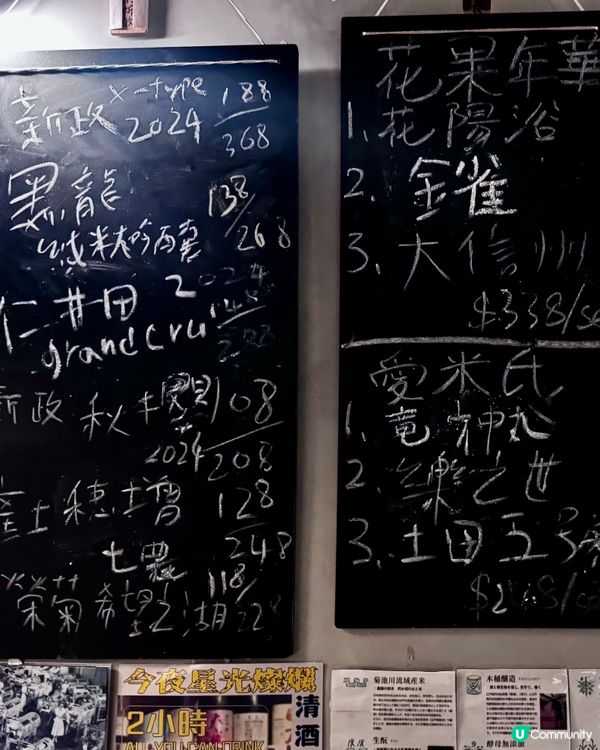 新政 X-type 188
2024 368
黒龍 138/
純米大吟醸 268
仁井田 2024
grand cru
新政 秋櫻 108
2024 208
産土 穂増 128
七農 248
榮菊 希望之湖 118/
228
花果年華
1. 花陽浴
2. 金雀
3. 大信州
$338/se
愛米氏
1. 竜神丸
2. 樂之世
3. 土田五号
$248/se
今夜星光燦爛
2小時
ALL YOU CAN DRINK
清酒
菊池川流域産米
生酛
木桶醸造
酵母無添加
U Community